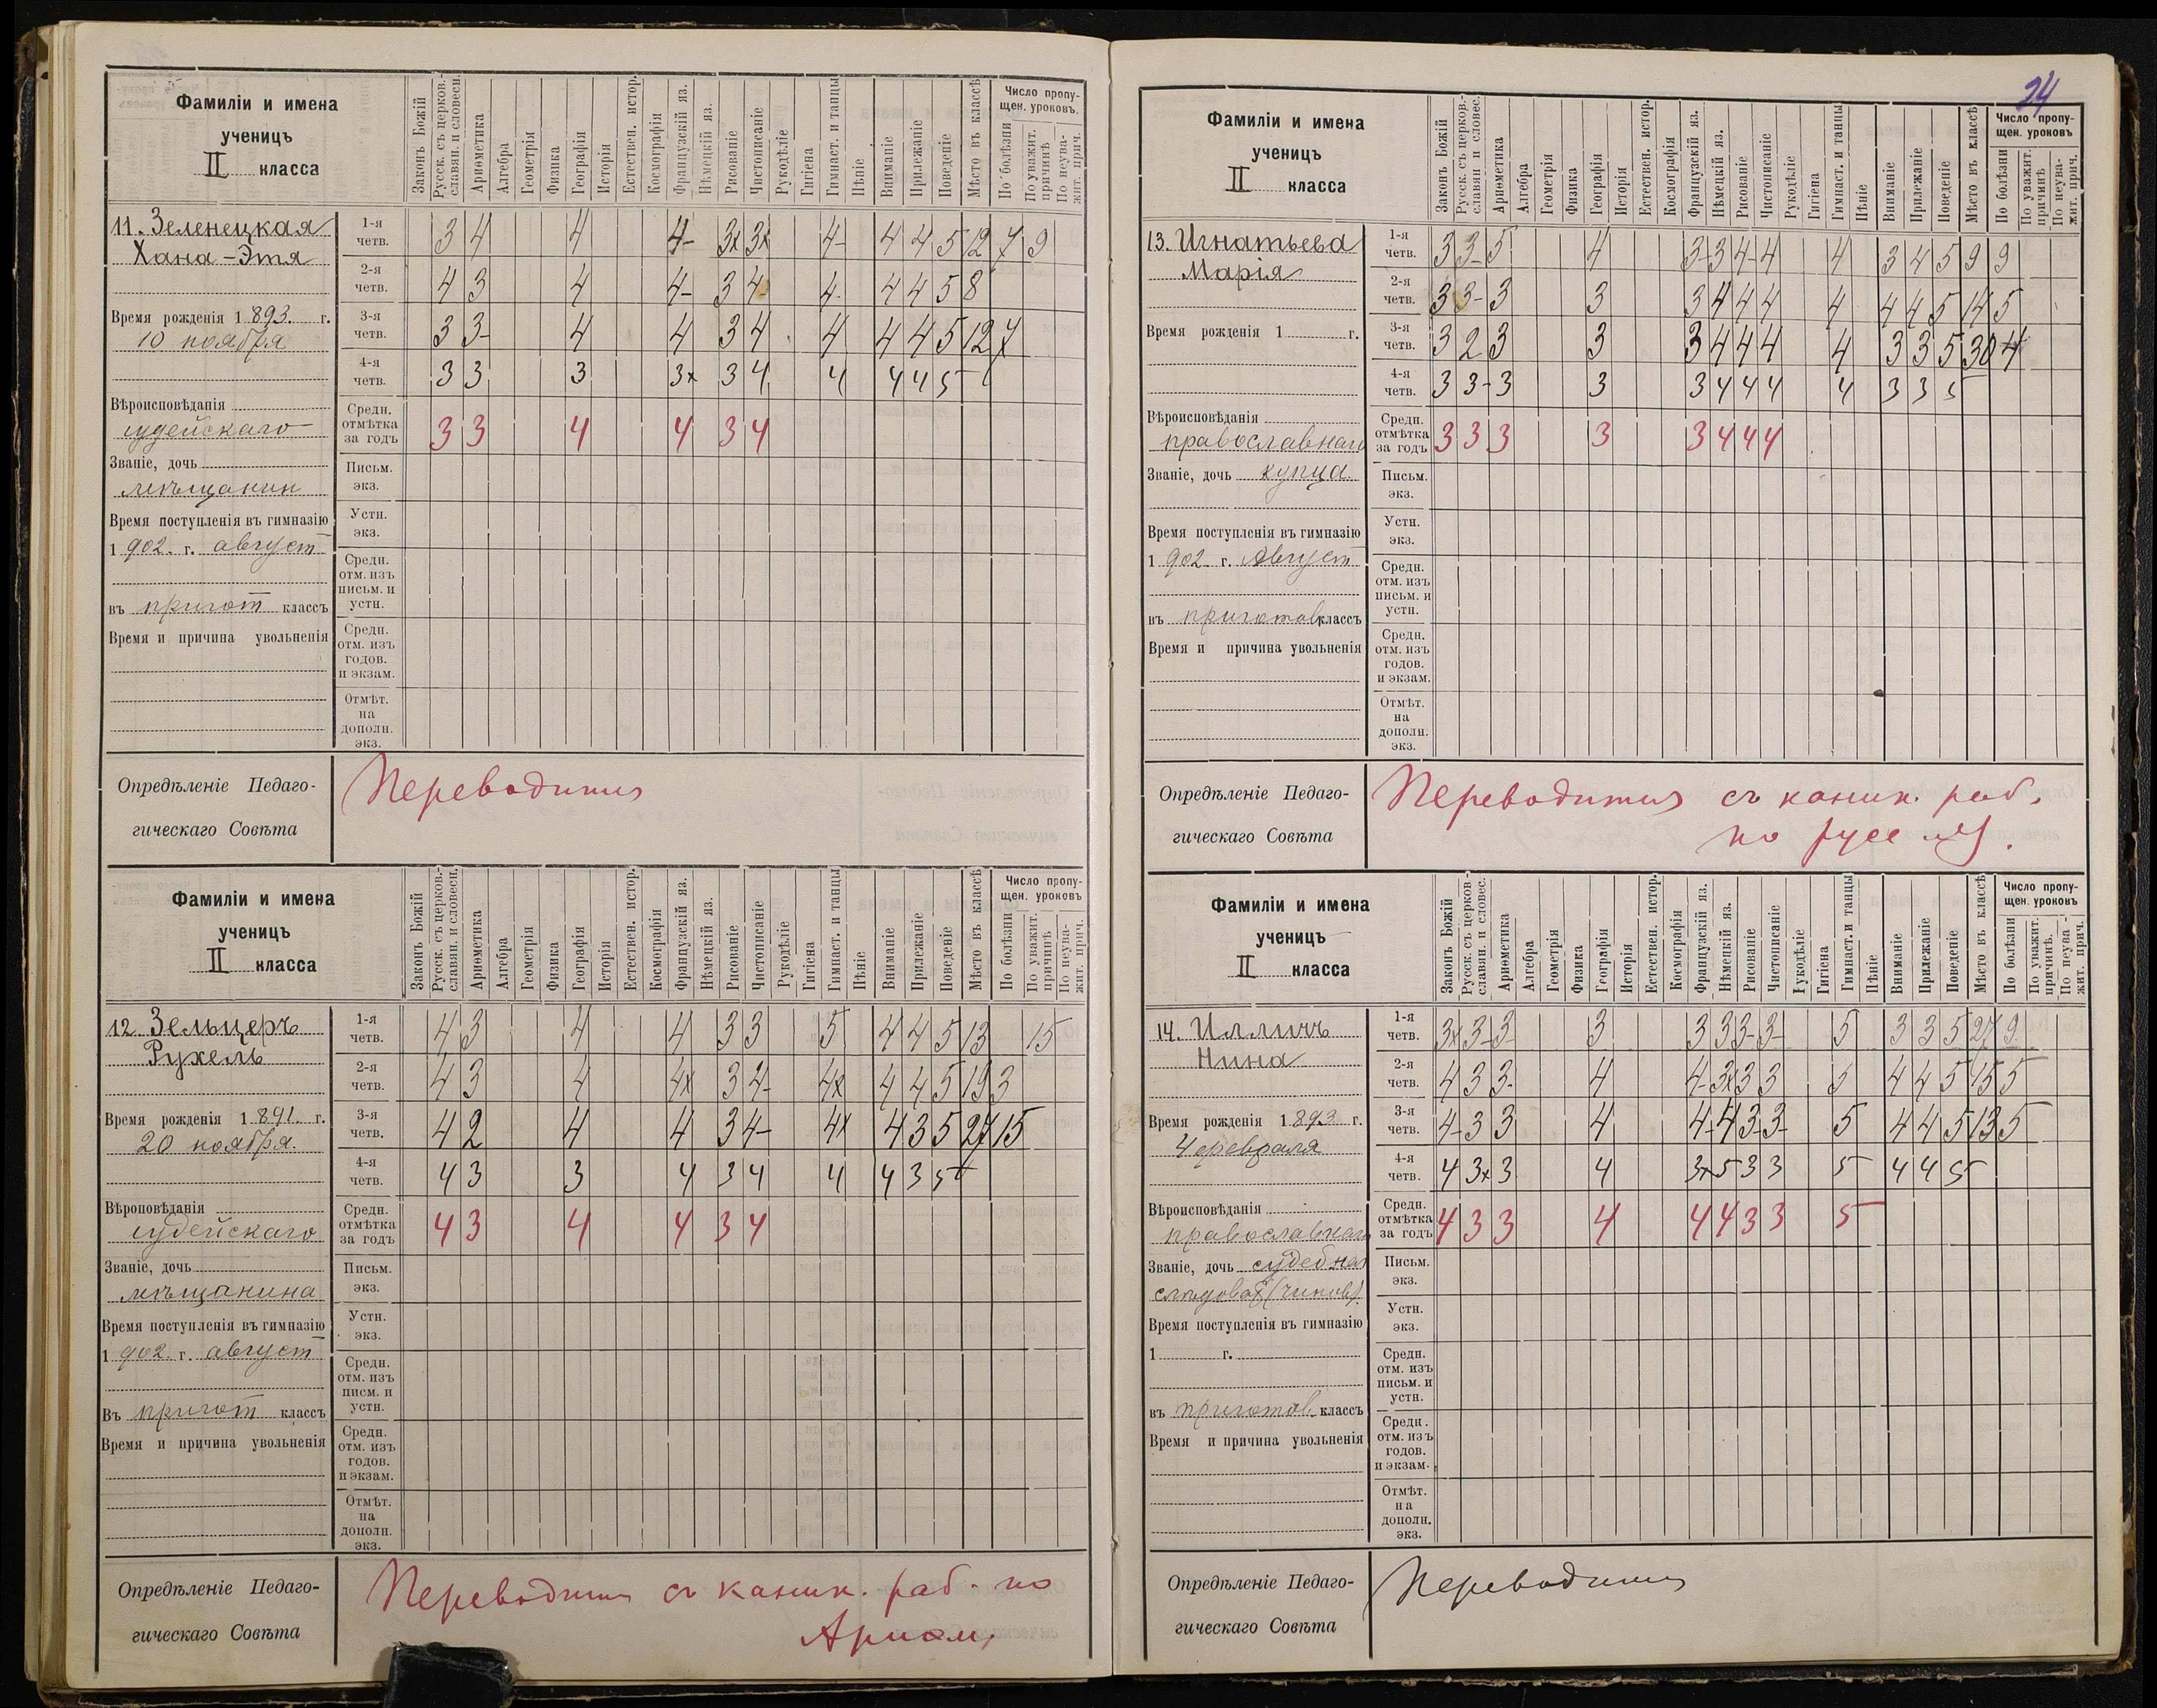 24
Фамиліи и имена
ученицъ
II класса
Законъ Божій
Русск. съ церков.-
славян. и словесн.
Ариѳметика
Алгебра
Геометрія
Физика
Географія
Исторія
Естествен. истор.
Космографія
Французскій яз.
Нѣмецкій яз.
Рисованіе
Чистописаніе
Рукодѣліе
Гигіена
Гимнаст. и танцы
Пѣніе
Вниманіе
Прилежаніе
Поведеніе
Мѣсто въ классѣ
Число пропу-
щен. уроковъ.
По болѣзни
По уважит.
причинѣ
По неува-
жит. прич.
11. Зеленецкая
Хана-Этя
Время рожденія 1893. г.
10 ноября
Вѣроисповѣданія
іудейскаго
Званіе, дочь
мѣщанин
Время поступленія въ гимназію
1902. г. август
въ пригот классъ
Время и причина увольненія
1-я четв. 3 4 4 4- 3x 3x 4- 4 4 5 12 7 9
2-я четв. 4 3 4 4- 3 4- 4- 4 4 5 8
3-я четв. 3 3- 4 4 3 4 4 4 4 5 12 7
4-я четв. 3 3 3 3x 3 4 4 4 4 5
Средн. отмѣтка за годъ 3 3 4 4 3 4
Письм. экз.
Устн. экз.
Средн. отм. изъ письм. и устн.
Средн. отм. изъ годов. и экзам.
Отмѣт. на дополн. экз.
Опредѣленіе Педаго-
гическаго Совѣта
Переводится
Фамиліи и имена
ученицъ
II класса
Законъ Божій
Русск. съ церков.-
славян. и словесн.
Ариѳметика
Алгебра
Геометрія
Физика
Географія
Исторія
Естествен. истор.
Космографія
Французскій яз.
Нѣмецкій яз.
Рисованіе
Чистописаніе
Рукодѣліе
Гигіена
Гимнаст. и танцы
Пѣніе
Вниманіе
Прилежаніе
Поведеніе
Мѣсто въ классѣ
Число пропу-
щен. уроковъ
По болѣзни
По уважит.
причинѣ
По неува-
жит. прич.
12 Зельцеръ
Рухель
Время рожденія 1891. г.
20 ноября.
Вѣроповѣданія
іудейскаго
Званіе, дочь
мѣщанина
Время поступленія въ гимназію
1902. г. август
Въ пригот классъ
Время и причина увольненія
1-я четв. 4 3 4 4 3 3 5 4 4 5 13 15
2-я четв. 4 3 4 4x 3 4- 4x 4 4 5 19 3
3-я четв. 4 2 4 4 3 4- 4x 4 3 5 27 15
4-я четв. 4 3 3 4 3 4 4 4 3 5
Средн. отмѣтка за годъ 4 3 4 4 3 4
Письм. экз.
Устн. экз.
Средн. отм. изъ писм. и устн.
Средн. отм. изъ годов. и экзам.
Отмѣт. на дополн. экз.
Опредѣленіе Педаго-
гическаго Совѣта
Переводится съ каник. раб. по
Ариѳм.
Фамиліи и имена
ученицъ
II класса
Законъ Божій
Русск. съ церков.-
славян и словес.
Ариѳметика
Алгебра
Геометрія
Физика
Географія
Исторія
Естествен. истор.
Космографія
Французскій яз.
Нѣмецкій яз.
Рисованіе
Чистописаніе
Рукодѣліе
Гигіена
Гимнаст. и танцы
Пѣніе
Вниманіе
Прилежаніе
Поведеніе
Мѣсто въ классѣ
Число пропу-
щен. уроковъ
По болѣзни
По уважит.
причинѣ
По неува-
жит. прич.
13. Игнатьева
Марія
Время рожденія 1 г.
Вѣроисповѣданія
православнаго
Званіе, дочь купца
Время поступленія въ гимназію
1902. г. Август
въ приготов классъ
Время и причина увольненія
1-я четв. 3 3- 5 4 3- 3 4- 4 4 3 4 5 9 9
2-я четв. 3 3- 3 3 3 4 4 4 4 4 4 5 14 5
3-я четв. 3 2 3 3 3 4 4 4 4 3 3 5 30 4
4-я четв. 3 3- 3 3 3 4 4 4 4 3 3 5
Средн. отмѣтка за годъ 3 3 3 3 3 4 4 4
Письм. экз.
Устн. экз.
Средн. отм. изъ письм. и устн.
Средн. отм. изъ годов. и экзам.
Отмѣт. на дополн. экз.
Опредѣленіе Педаго-
гическаго Совѣта
Переводится съ каник. раб.
по русс яз.
Фамиліи и имена
ученицъ
II класса
Законъ Божій
Русск. съ церков-
славян. и словес.
Ариѳметика
Алгебра
Геометрія
Физика
Географія
Исторія
Естествен. истор.
Космографія
Французскій яз.
Нѣмецкій яз.
Рисованіе
Чистописаніе
Рукодѣліе
Гигіена
Гимнаст. и танцы
Пѣніе
Вниманіе
Прилежаніе
Поведеніе
Мѣсто въ классѣ
Число пропу-
щен. уроковъ
По болѣзни
По уважит.
причинѣ.
По неува-
жит. прич.
14. Илличъ
Нина
Время рожденія 1893 г.
4 февраля
Вѣроисповѣданія
православнаго
Званіе, дочь судебнаг
слѣдоват (чинов).
Время поступленія въ гимназію
1 г.
въ приготов. классъ
Время и причина увольненія
1-я четв. 3x 3- 3- 3 3 3 3- 3- 5 3 3 5 27 9
2-я четв. 4 3 3- 4 4- 3x 3 3 5 4 4 5 15 5
3-я четв. 4- 3 3 4 4- 4 3- 3- 5 4 4 5 13 5
4-я четв. 4 3x 3 4 3x 5 3 3 5 4 4 5
Средн. отмѣтка за годъ 4 3 3 4 4 4 3 3 5
Письм. экз.
Устн. экз.
Средн. отм. изъ письм. и устн.
Средн. отм. изъ годов. и экзам.
Отмѣт. на дополн. экз.
Опредѣленіе Педаго-
гическаго Совѣта
Переводится